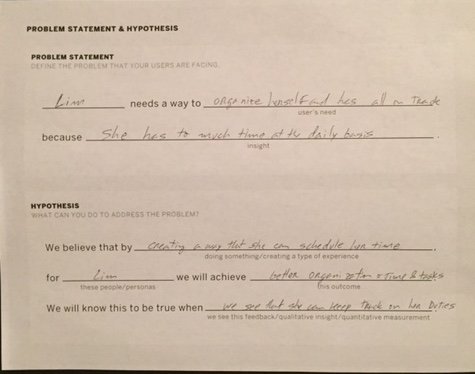 PROBLEM STATEMENT & HYPOTHESIS
PROBLEM STATEMENT
DEFINE THE PROBLEM THAT YOUR USERS ARE FACING.
Lim needs a way to organize herself and has all on Track
user's need
because She has to much time at the daily basis.
insight
HYPOTHESIS
WHAT CAN YOU DO TO ADDRESS THE PROBLEM?
We believe that by creating a way that she can schedule her time,
doing something/creating a type of experience
for Lim we will achieve better organization time & tasks
these people/personas this outcome
We will know this to be true when we see that she can keep track on her Duties
we see this feedback/qualitative insight/quantitative measurement